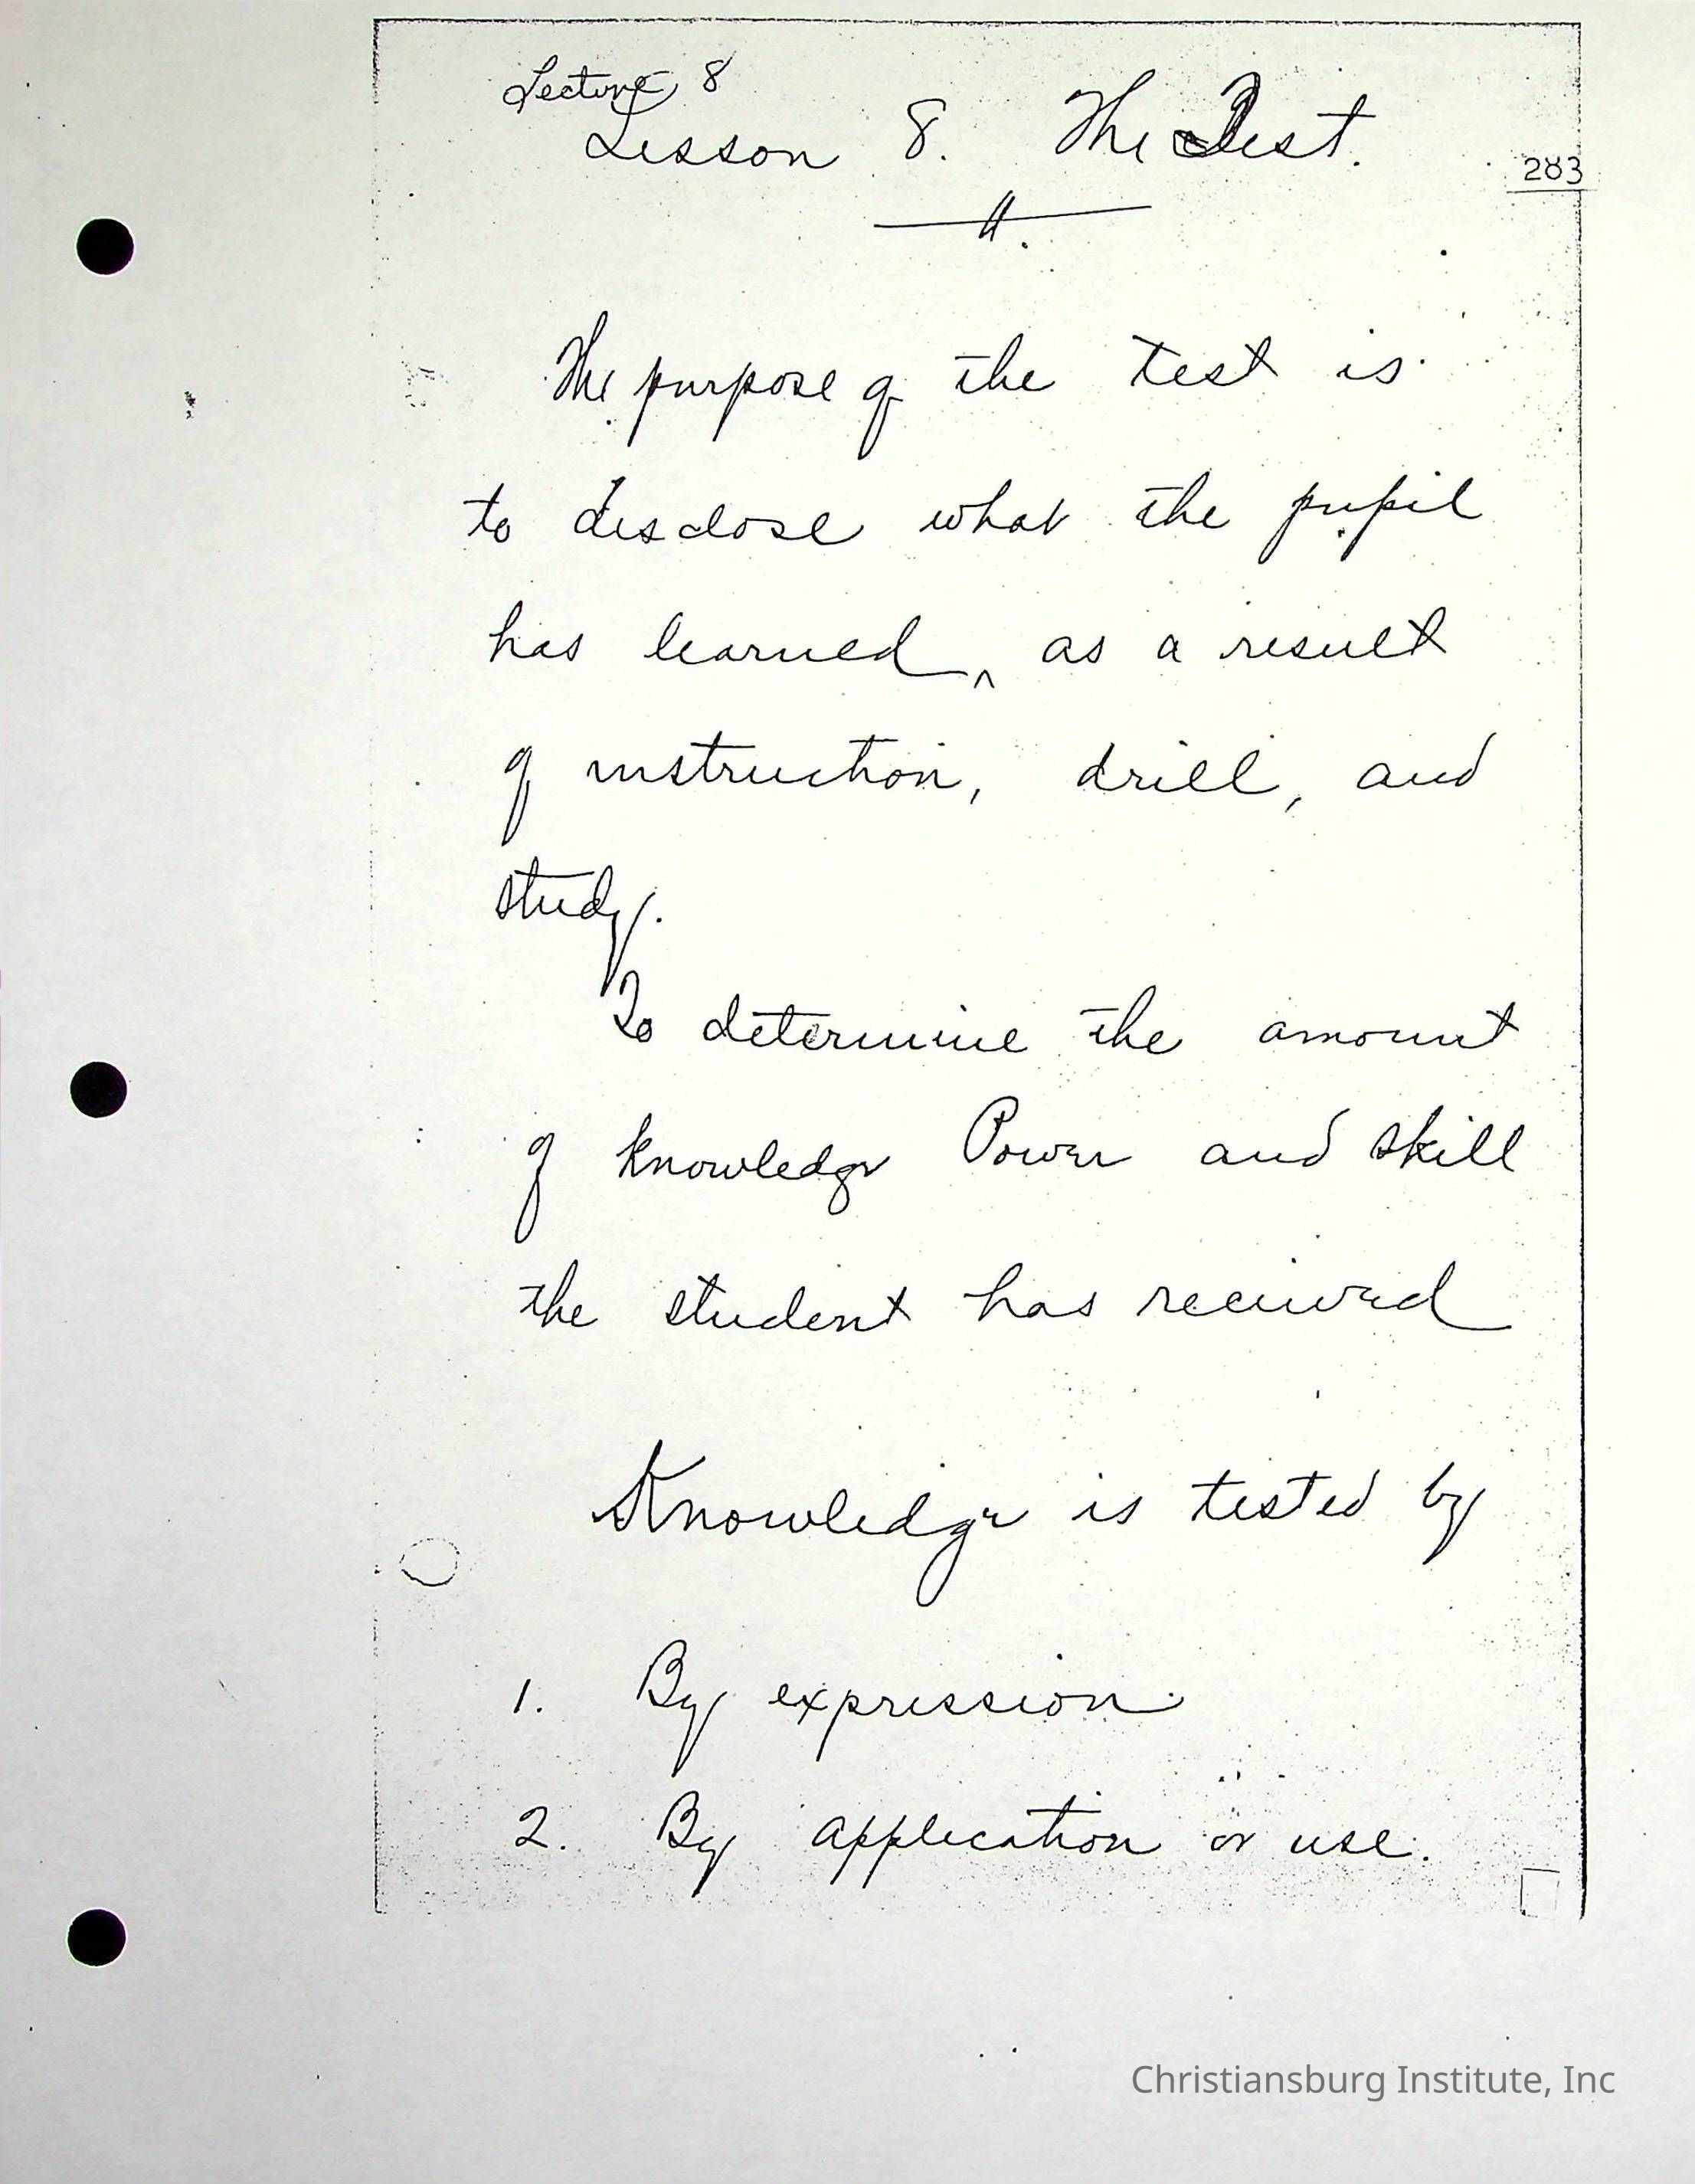 Lecture 8
Lesson 8. The Test.
283
The purpose of the test is
to disclose what the pupil
has learned, as a result
of instruction, drill, and
study.
To determine the amount
of knowledge Power and skill
the student has received
Knowledge is tested by
1. By expression.
2. By application or use.
Christiansburg Institute, Inc